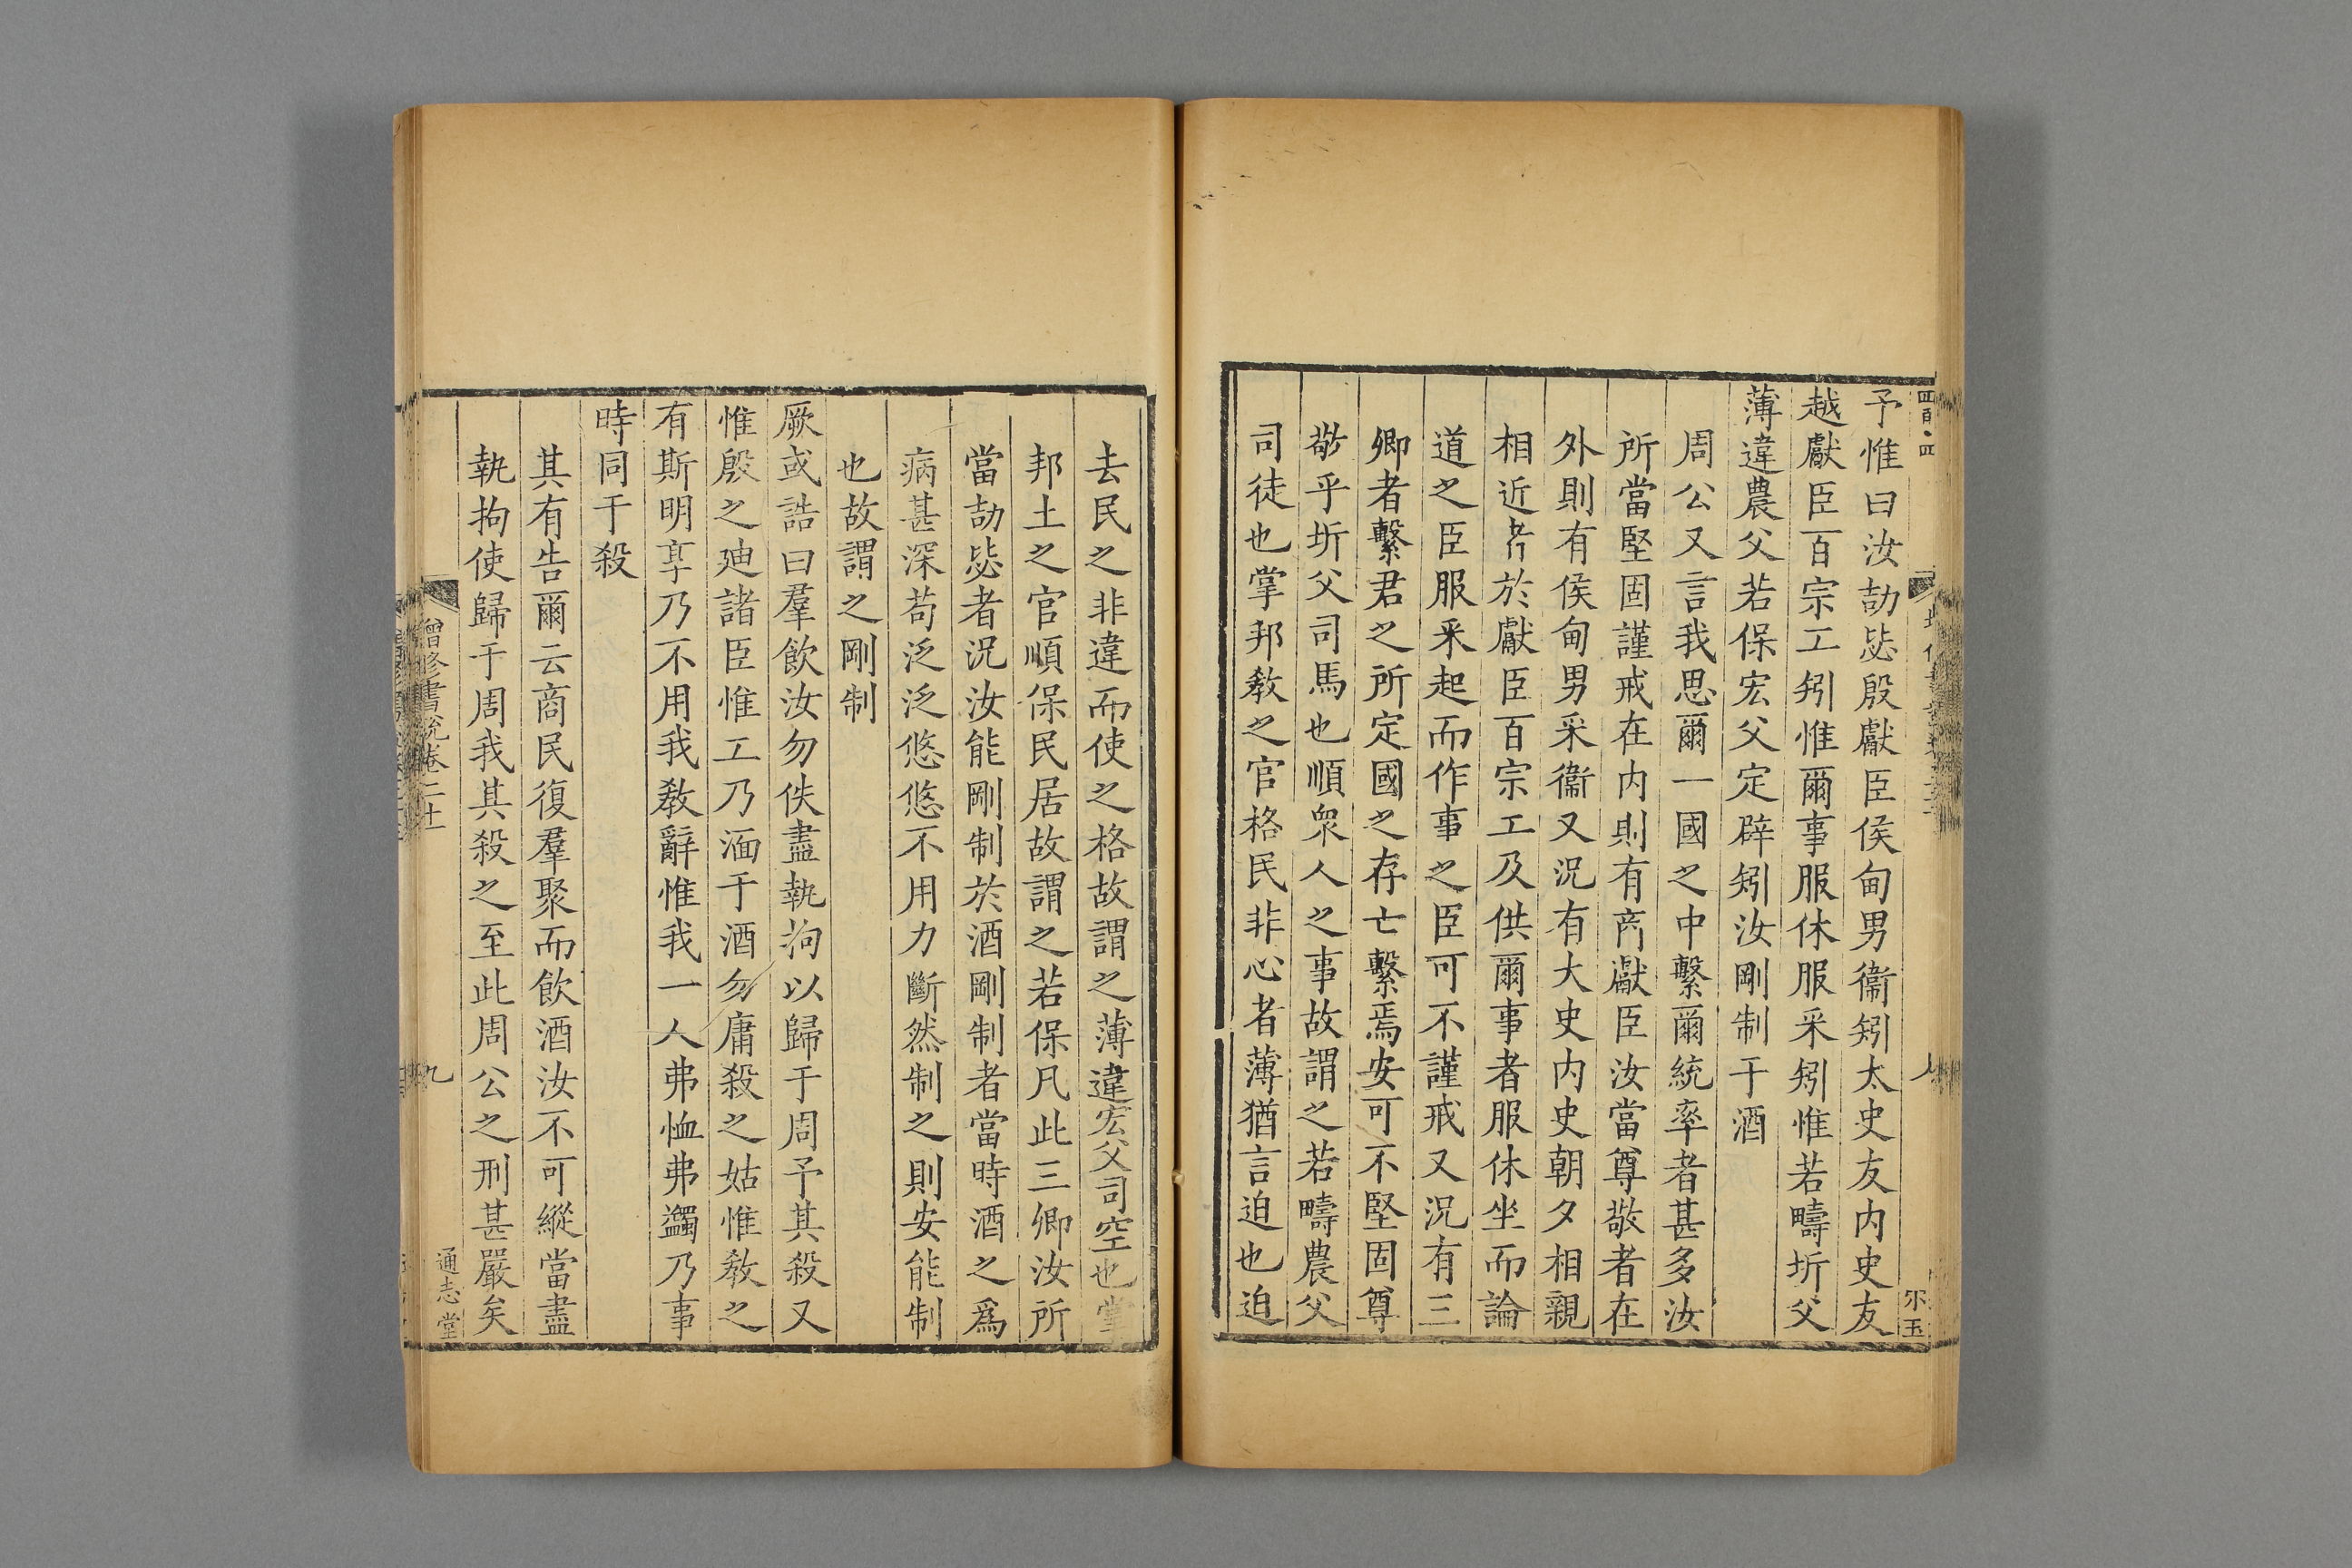 予惟曰汝劼毖殷獻臣侯甸男衞矧太史友内史友
越獻臣百宗工矧惟爾事服休服采矧惟若疇圻父
薄違農父若保宏父定辟矧汝剛制于酒
周公又言我思爾一國之中繫爾統率者甚多汝
所當堅固謹戒在内則有商獻臣汝當尊敬者在
外則有侯甸男采衞又況有大史内史朝夕相親
相近者於獻臣百宗工及供爾事者服休坐而論
道之臣服采起而作事之臣可不謹戒又況有三
卿者繫君之所定國之存亡繫焉安可不堅固尊
敬乎圻父司馬也順衆人之事故謂之若疇農父
司徒也掌邦敎之官格民非心者薄猶言迫也迫
去民之非違而使之格故謂之薄違宏父司空也掌
邦土之官順保民居故謂之若保凡此三卿汝所
當劼毖者況汝能剛制於酒剛制者當時酒之爲
病甚深苟泛泛悠悠不用力斷然制之則安能制
也故謂之剛制
厥或誥曰羣飲汝勿佚盡執拘以歸于周予其殺又
惟殷之迪諸臣惟工乃湎于酒勿庸殺之姑惟敎之
有斯明享乃不用我敎辭惟我一人弗恤弗蠲乃事
時同于殺
其有告爾云商民復羣聚而飲酒汝不可縱當盡
執拘使歸于周我其殺之至此周公之刑甚嚴矣
增修書說卷二十
九
通志堂